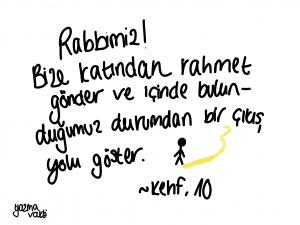 Rabbimiz!
Bize katından rahmet
gönder ve içinde bulun-
duğumuz durumdan bir çıkış
yolu göster.
~Kehf, 10
yazma
vakti